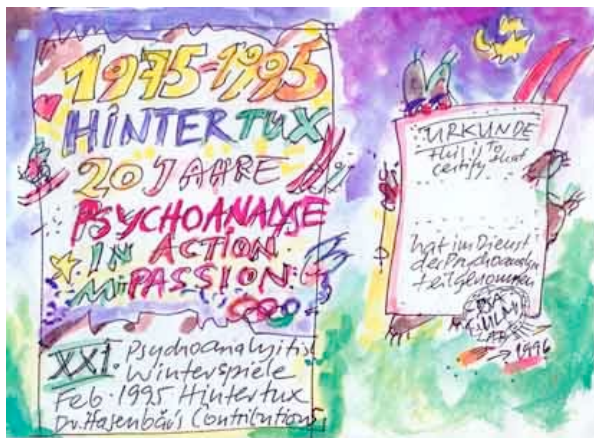 1975-1995
HINTERTUX
20 JAHRE
PSYCHOANALYSE
IN ACTION
MiPASSION
XXI. Psychoanalytis
Winterspiele
Feb. 1995 Hintertux
Dr. Hasenbär's Contributions
URKUNDE
this is to
certify that
hat im Dienst
der Psychoanalyse
teilgenommen
ULM
1996